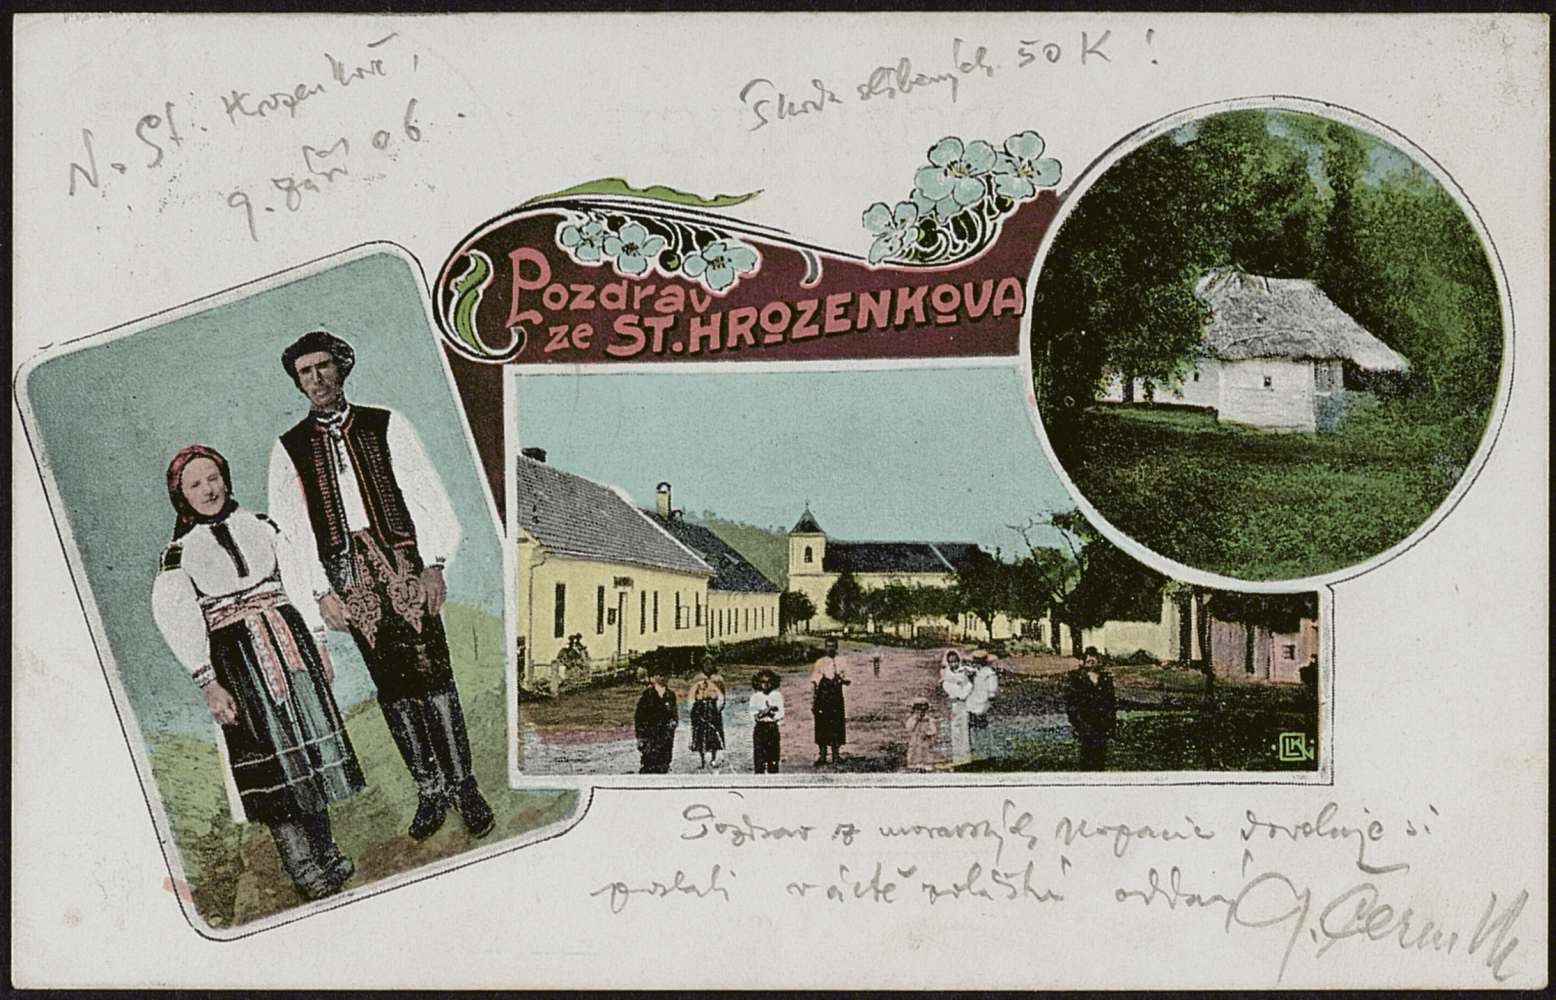 N. St. Hrozenkově,
9. září 06.
Škoda slíbených 50 K!
Pozdrav
ze ST. HROZENKOVA
LK
Pozdrav z moravských Kopanic dovoluje si
poslati v úctě zvláštní oddaný
J. Černík